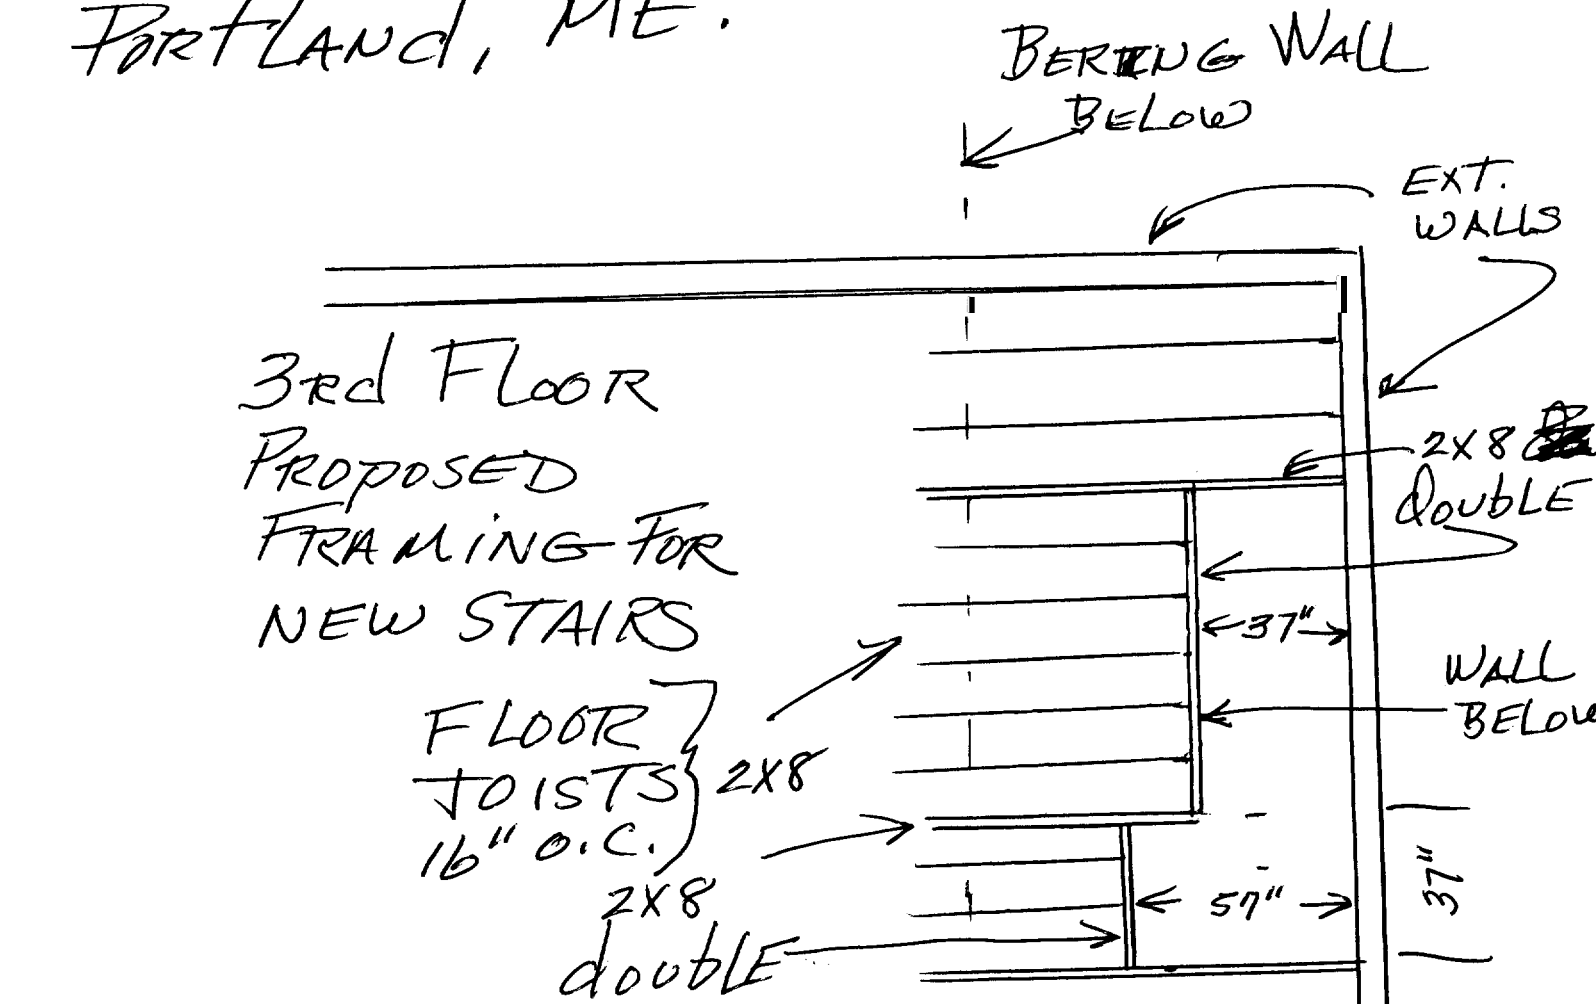 PORTLANd, ME.
BERING WALL
BELOW
EXT.
WALLS
3rd FLOOR
PROPOSED
FRAMING FOR
NEW STAIRS
2X8
double
37"
WALL
BELOW
FLOOR
JOISTS
16" O.C.
2X8
2X8
double
57"
37"